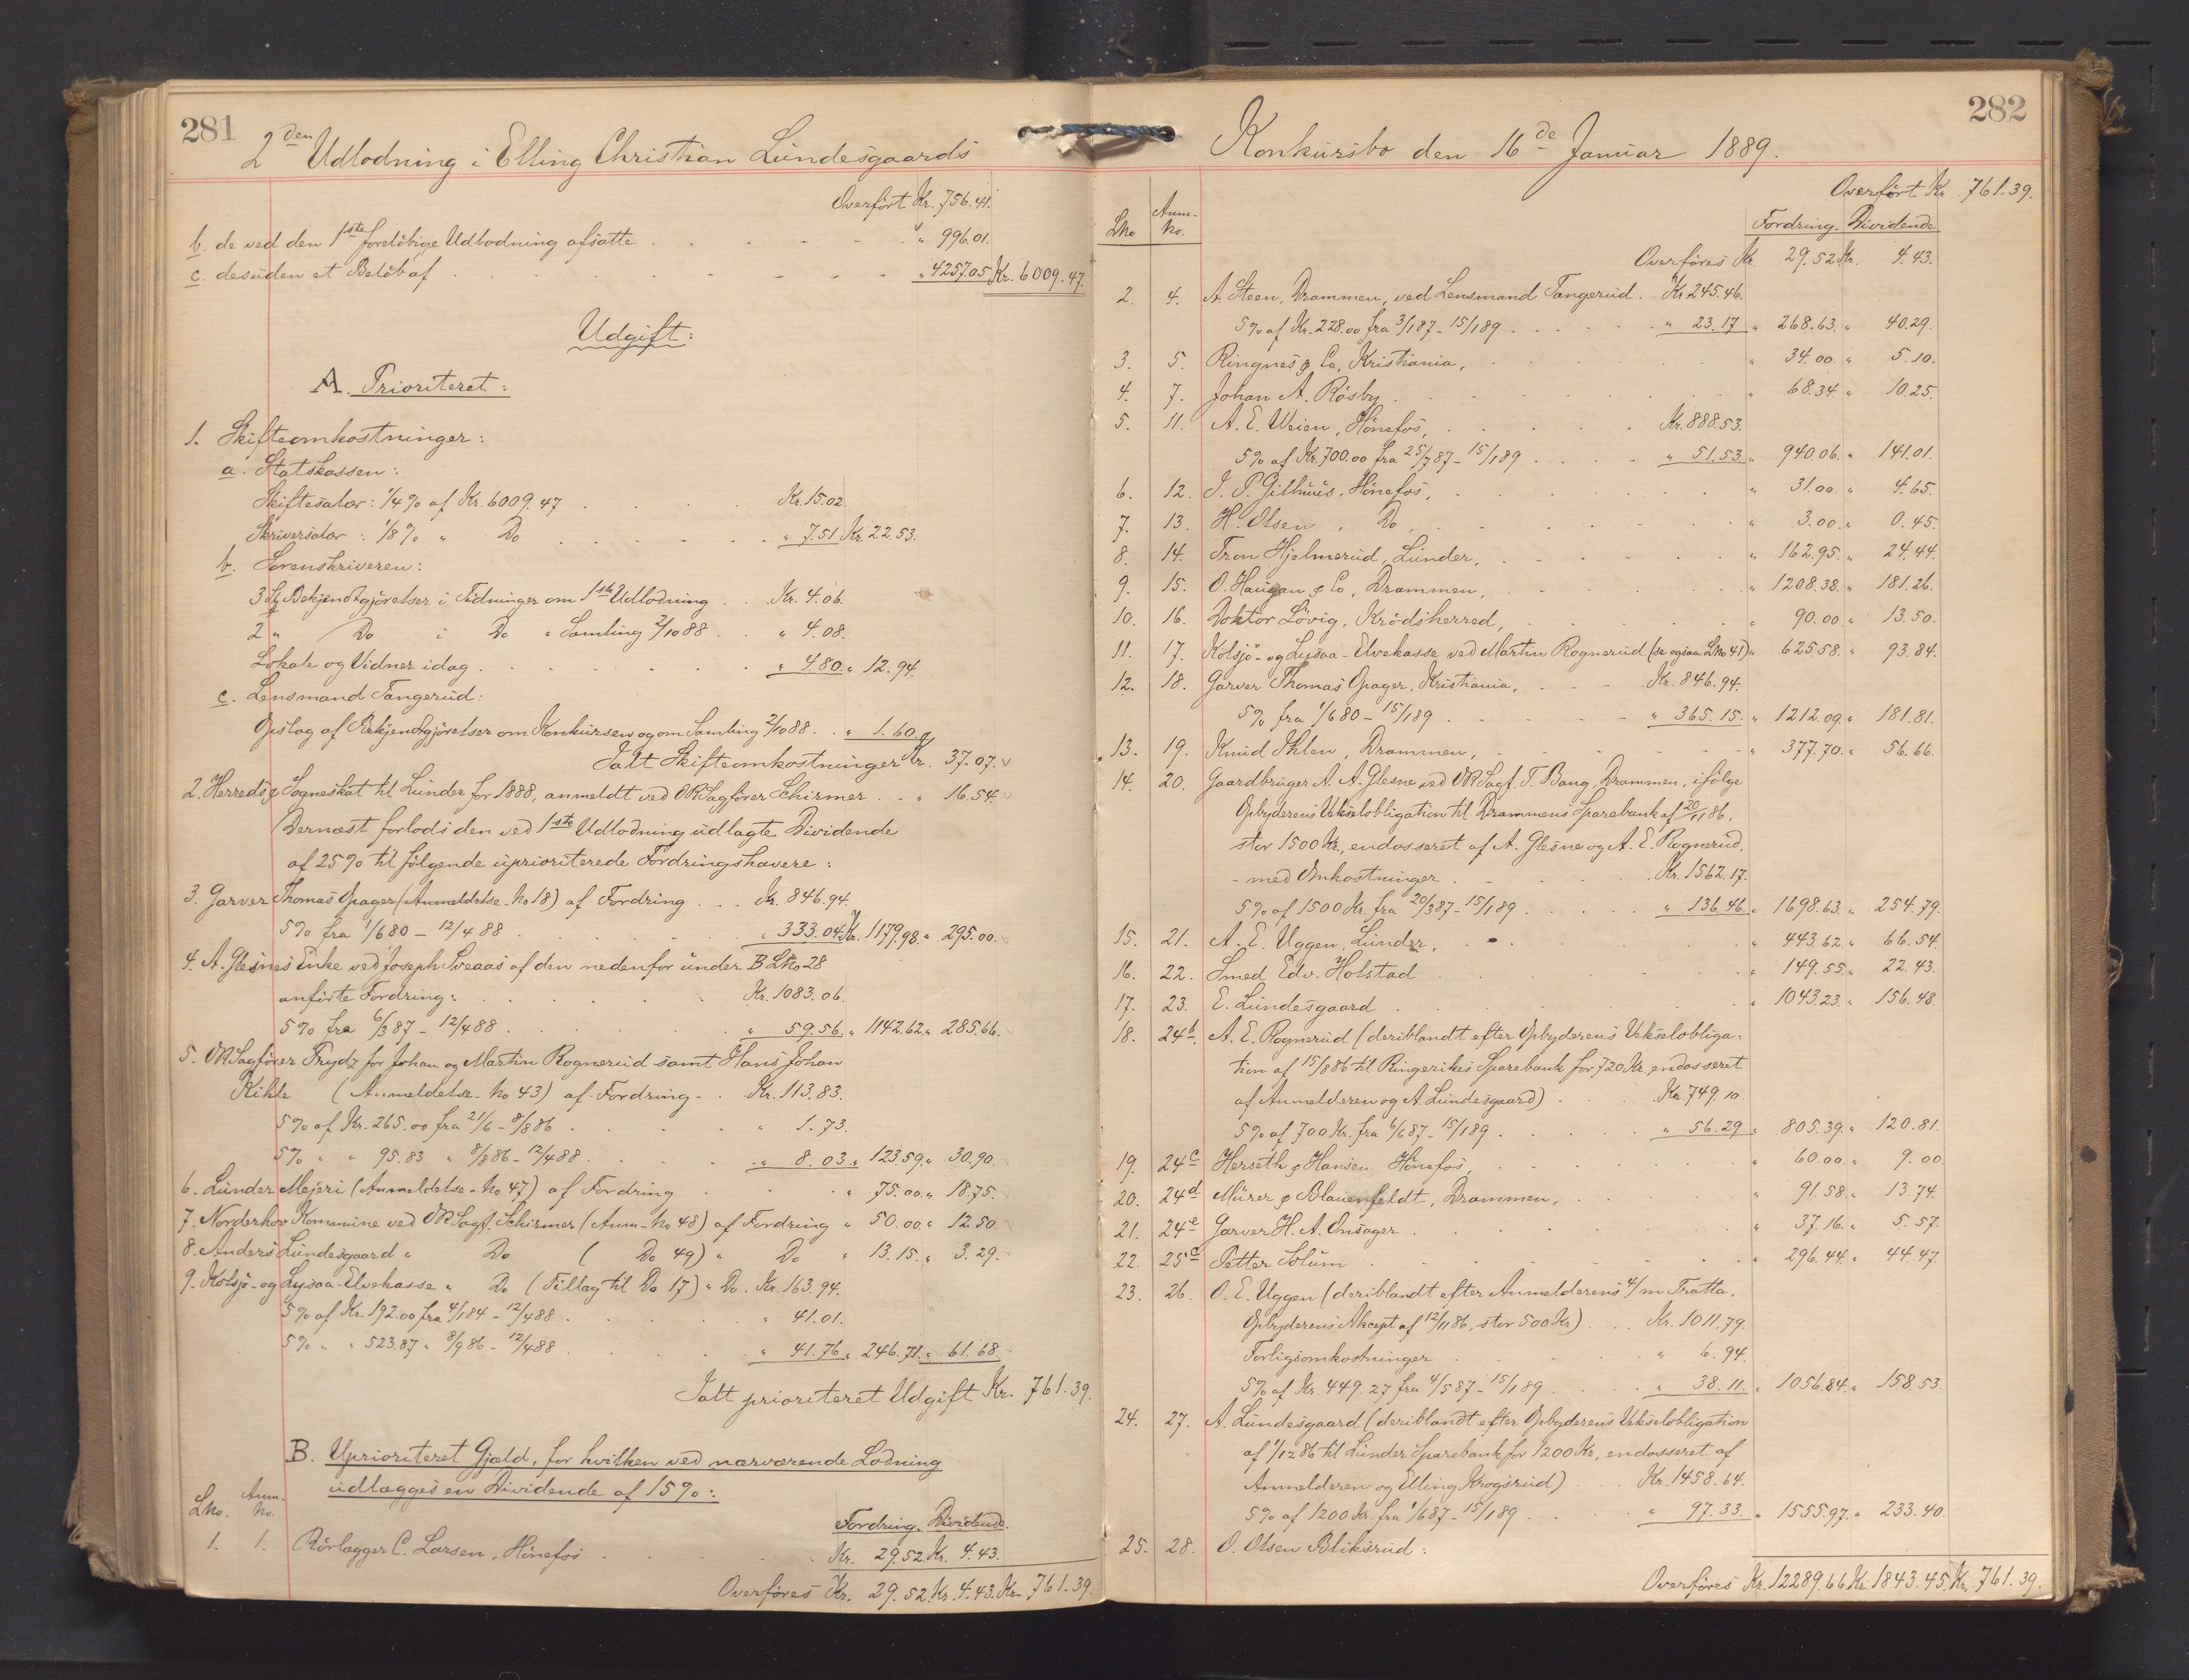 281
2den Udlodning i Elling Christian Lundesgaards
Overført Kr. 756.41.
b. de ved den 1ste foreløbige Udlodning afsatte . . . . " 996.01.
c. desuden et Beløb af . . . . " 4257.05 Kr. 6009.47.
Udgift:
A. Prioriteret:
1. Skifteomkostninger:
a. Statskassen:
Skiftesalær: 1/4 % af Kr. 6009.47 . . . Kr. 15.02.
Skriversalær: 1/8 % " Do . . . " 7.51 Kr. 22.53.
b. Sorenskriveren:
3 Stk Bekjendtgjørelser i Tidninger om 1ste Udlodning . . Kr. 4.06.
2 " Do i Do " Samling 2/10 88 . . " 4.08.
Lokale og Vidner idag . . . " 4.80 " 12.94.
c. Lensmand Tangerud:
Opslag af Bekjendtgjørelser om Konkursen og om Samling 2/10 88 . . " 1.60.
Ialt Skifteomkostninger Kr. 37.07.
2. Herreds & Sogneskat til Lunder for 1888, anmeldt ved ORSagfører Schirmer . . " 16.54.
Dernæst forlods den ved 1ste Udlodning udlagte Dividende
af 25 % til følgende uprioriterede Fordringshavere:
3. Garver Thomas Opager (Anmeldelse-No 18) af Fordring . . . Kr. 846.94.
5 % fra 1/6 80 – 12/4 88 . . . " 333.04 Kr. 1179.98 " 295.00.
4. A. Glesnes Enke ved Joseph Sveaas af den nedenfor under B LNo 28
anførte Fordring: . . . Kr. 1083.06.
5 % fra 6/3 87 – 12/4 88 . . . " 59.56 " 1142.62 " 285.66.
5. ORSagfører Frydz for Johan og Martin Rognerud samt Hans Johan
Kihle (Anmeldelse-No 43) af Fordring - . Kr. 113.83.
5 % af Kr. 265.00 fra 21/6 – 8/8 86 . . . " 1.73.
5 % " " 95.83 " 8/8 86 – 12/4 88 . . . " 8.03 " 123.59 " 30.90.
6. Lunder Mejeri (Anmeldelse-No 47) af Fordring . . . " 75.00 " 18.75.
7. Norderhov Kommune ved ORSagf. Schirmer (Anm-No 48) af Fordring " 50.00 " 12.50.
8. Anders Lundesgaard " Do ( Do 49) " Do " 13.15 " 3.29.
9. Kolsjø- og Lysaa-Elvekasse " Do (Tillæg til Do 17) " Do. Kr. 163.94.
5 % af Kr. 192.00 fra 4/1 84 – 12/4 88 . . . " 41.01.
5 % " " 523.87 " 8/9 86 – 12/4 88 . . . " 41.76 " 246.71 " 61.68.
Ialt prioriteret Udgift Kr. 761.39.
B. Uprioriteret Gjæld, for hvilken ved nærværende Lodning
udlægges en Dividende af 15 %:
LNo. Anm-No. Fordring. Dividende.
1. 1. Rørlægger C. Larsen, Hønefos . . . Kr. 29.52 Kr. 4.43.
Overføres Kr. 29.52 Kr. 4.43. Kr. 761.39.
282
Konkursbo den 16de Januar 1889.
Overført Kr. 761.39.
LNo Anm-No. Fordring. Dividende
Overføres Kr 29.52 Kr. 4.43.
2. 4. A. Steen, Drammen, ved Lensmand Tangerud . . Kr. 245.46.
5 % af Kr. 228.00 fra 3/1 87 – 15/1 89 . . . " 23.17 " 268.63 " 40.29.
3. 5. Ringnes & Co, Kristiania, . . . " 34.00 " 5.10.
4. 7. Johan A. Røsby . . . " 68.34 " 10.25.
5. 11. A. E. Weien, Hønefos, . . . Kr. 888.53.
5 % af Kr. 700.00 fra 25/7 87 – 15/1 89 . . . " 51.53 " 940.06 " 141.01.
6. 12. J. P. Gilhuus, Hønefos, . . . " 31.00 " 4.65.
7. 13. H. Olsen, Do, . . . " 3.00 " 0.45.
8. 14. Tron Hjelmerud, Lunder, . . . " 162.95 " 24.44.
9. 15. O. Haugan & Co, Drammen, . . . " 1208.38 " 181.26.
10. 16. Doktor Løvig, Krødsherred, . . . " 90.00 " 13.50.
11. 17. Kolsjø- og Lysaa-Elvekasse ved Martin Rognerud (se ogsaa LNo 41) " 625.58 " 93.84.
12. 18. Garver Thomas Opager, Kristiania, . . . Kr. 846.94.
5 % fra 1/6 80 – 15/1 89 . . . " 365.15 " 1212.09 " 181.81.
13. 19. Knud Ihlen, Drammen, . . . " 377.70 " 56.66.
14. 20. Gaardbruger A. A. Glesne ved ORSagf. T. Bang, Drammen, ifølge
Opbyderens Vekselobligation til Drammens Sparebank af 20/11 86,
stor 1500 Kr., endosseret af A. Glesne og A. E. Rognerud,
- med Omkostninger . . . Kr. 1562.17.
5 % af 1500 Kr. fra 20/3 87 – 15/1 89 . . . " 136.46 " 1698.63 " 254.79.
15. 21. A. E. Uggen, Lunder, . . . " 443.62 " 66.54.
16. 22. Smed Edv. Holstad . . . " 149.55 " 22.43.
17. 23. E. Lundesgaard . . . " 1043.23 " 156.48.
18. 24b. A. E. Rognerud (deriblandt efter Opbyderens Vekselobliga-
tion af 15/8 86 til Ringerikes Sparebank for 720 Kr, endosseret
af Anmelderen og A. Lundesgaard) . . . Kr. 749.10.
5 % af 700 Kr. fra 6/6 87 – 15/1 89 . . . " 56.29 " 805.39 " 120.81.
19. 24c Herseth & Hansen, Hønefos, . . . " 60.00 " 9.00
20. 24d Mürer & Blauenfeldt, Drammen, . . . " 91.58 " 13.74.
21. 24e Garver H. A. Onsager . . . " 37.16 " 5.57.
22. 25a Petter Solum . . . " 296.44 " 44.47.
23. 26. O. E. Uggen (deriblandt efter Anmelderens 4/m Tratta,
Opbyderens Akcept af 12/11 86, stor 500 Kr) . . . Kr. 1011.79.
Forligsomkostninger . . . " 6.94.
5 % af Kr. 449.27 fra 4/5 87 – 15/1 89 . . . " 38.11 " 1056.84 " 158.53.
24. 27. A. Lundesgaard (deriblandt efter Opbyderens Vekselobligation
af 1/12 86 til Lunder Sparebank for 1200 Kr., endosseret af
Anmelderen og Elling Krogsrud) . . Kr. 1458.64.
5 % af 1200 Kr. fra 1/6 87 – 15/1 89 . . . " 97.33 " 1555.97 " 233.40.
25. 28. O. Olsen Bliksrud:
Overføres Kr. 12289.66 Kr 1843.45. Kr. 761.39.